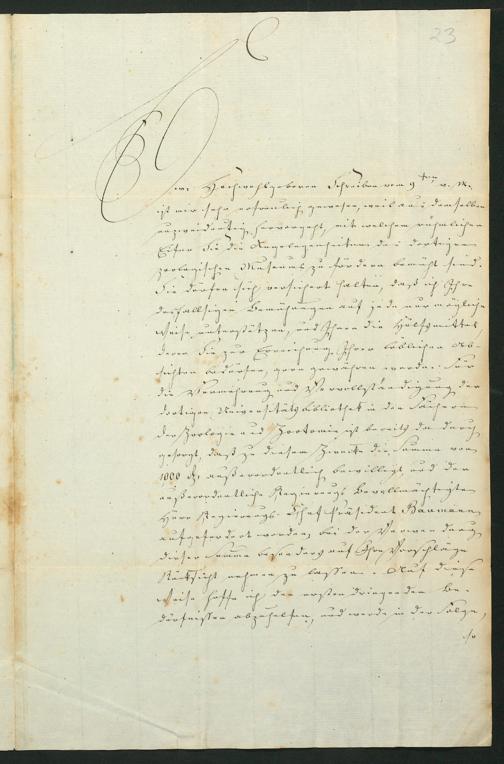 23
Ew: Hochwohlgeboren Schreiben vom 9ten v. M.
ist mir sehr erfreulich gewesen, weil aus demselben
unzweideutig hervorgeht, mit welchem rühmlichen
Eifer Sie die Angelegenheiten des dortigen
zoologischen Museums zu fördern bemüht sind.
Sie dürfen sich versichert halten, daß ich Ihre
desfallsigen Bemühungen auf jede nur mögliche
Weise unterstützen, und Ihnen die Hülfsmittel,
deren Sie zur Erreichung Ihrer löblichen Ab-
sichten bedürfen, gern gewähren werde. Für
die Vermehrung und Vervollständigung der
dortigen Universitäts bibliothek in den Fächern
der Zoologie und Zootomie ist bereits dadurch
gesorgt, daß zu diesem Zwecke die Summe von
1000 rt außerordentlich bewilligt und der
außerordentliche Regierungs Bevollmächtigte
Herr Regierungs Chef Präsident Baumann
aufgefordert worden, bei der Verwendung
dieser Summe besonders auf Ihre Vorschläge
Rücksicht nehmen zu lassen. Auf diese
Weise hoffe ich den ersten dringenden Be-
dürfnissen abzuhelfen, und werde in der Folge,